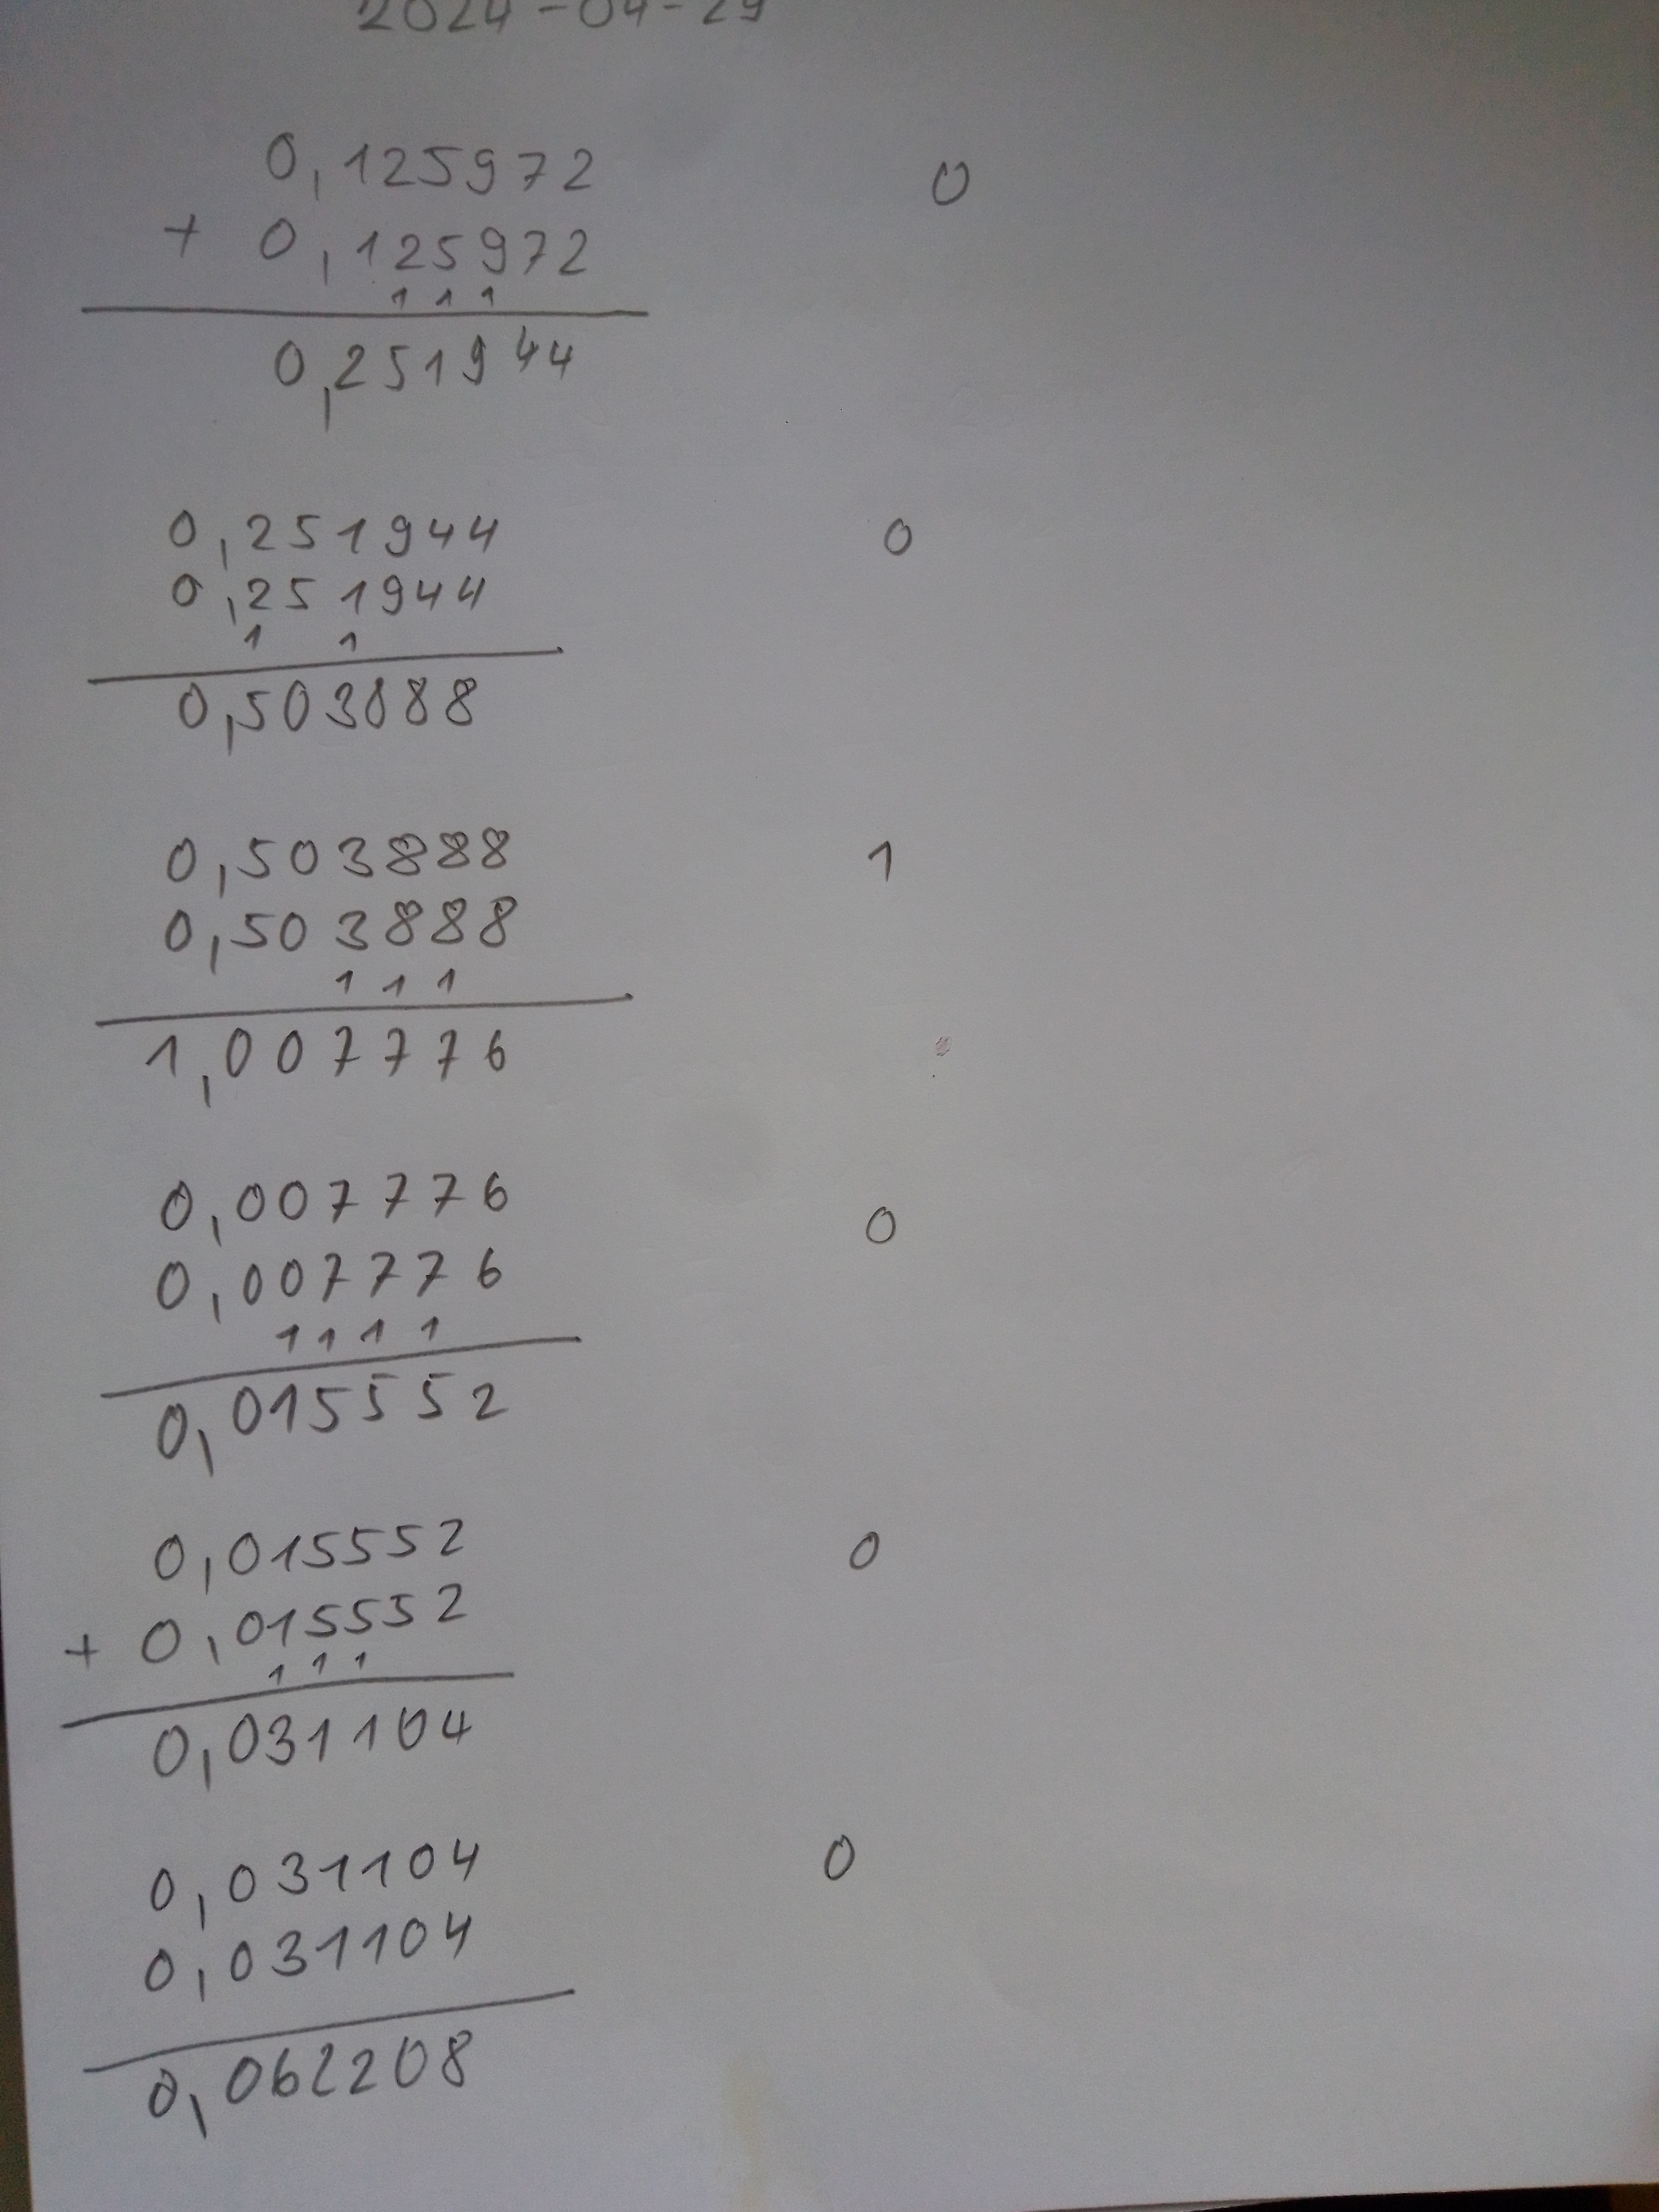 2024-04-29
0,125972 0
+ 0,125972
1 1 1
0,251944
0,251944 0
0,251944
1 1
0,503888
0,503888 1
0,503888
1 1 1
1,007776
0,007776 0
0,007776
1 1 1 1
0,015552
0,015552 0
+ 0,015552
1 1 1
0,031104
0,031104 0
0,031104
0,062208